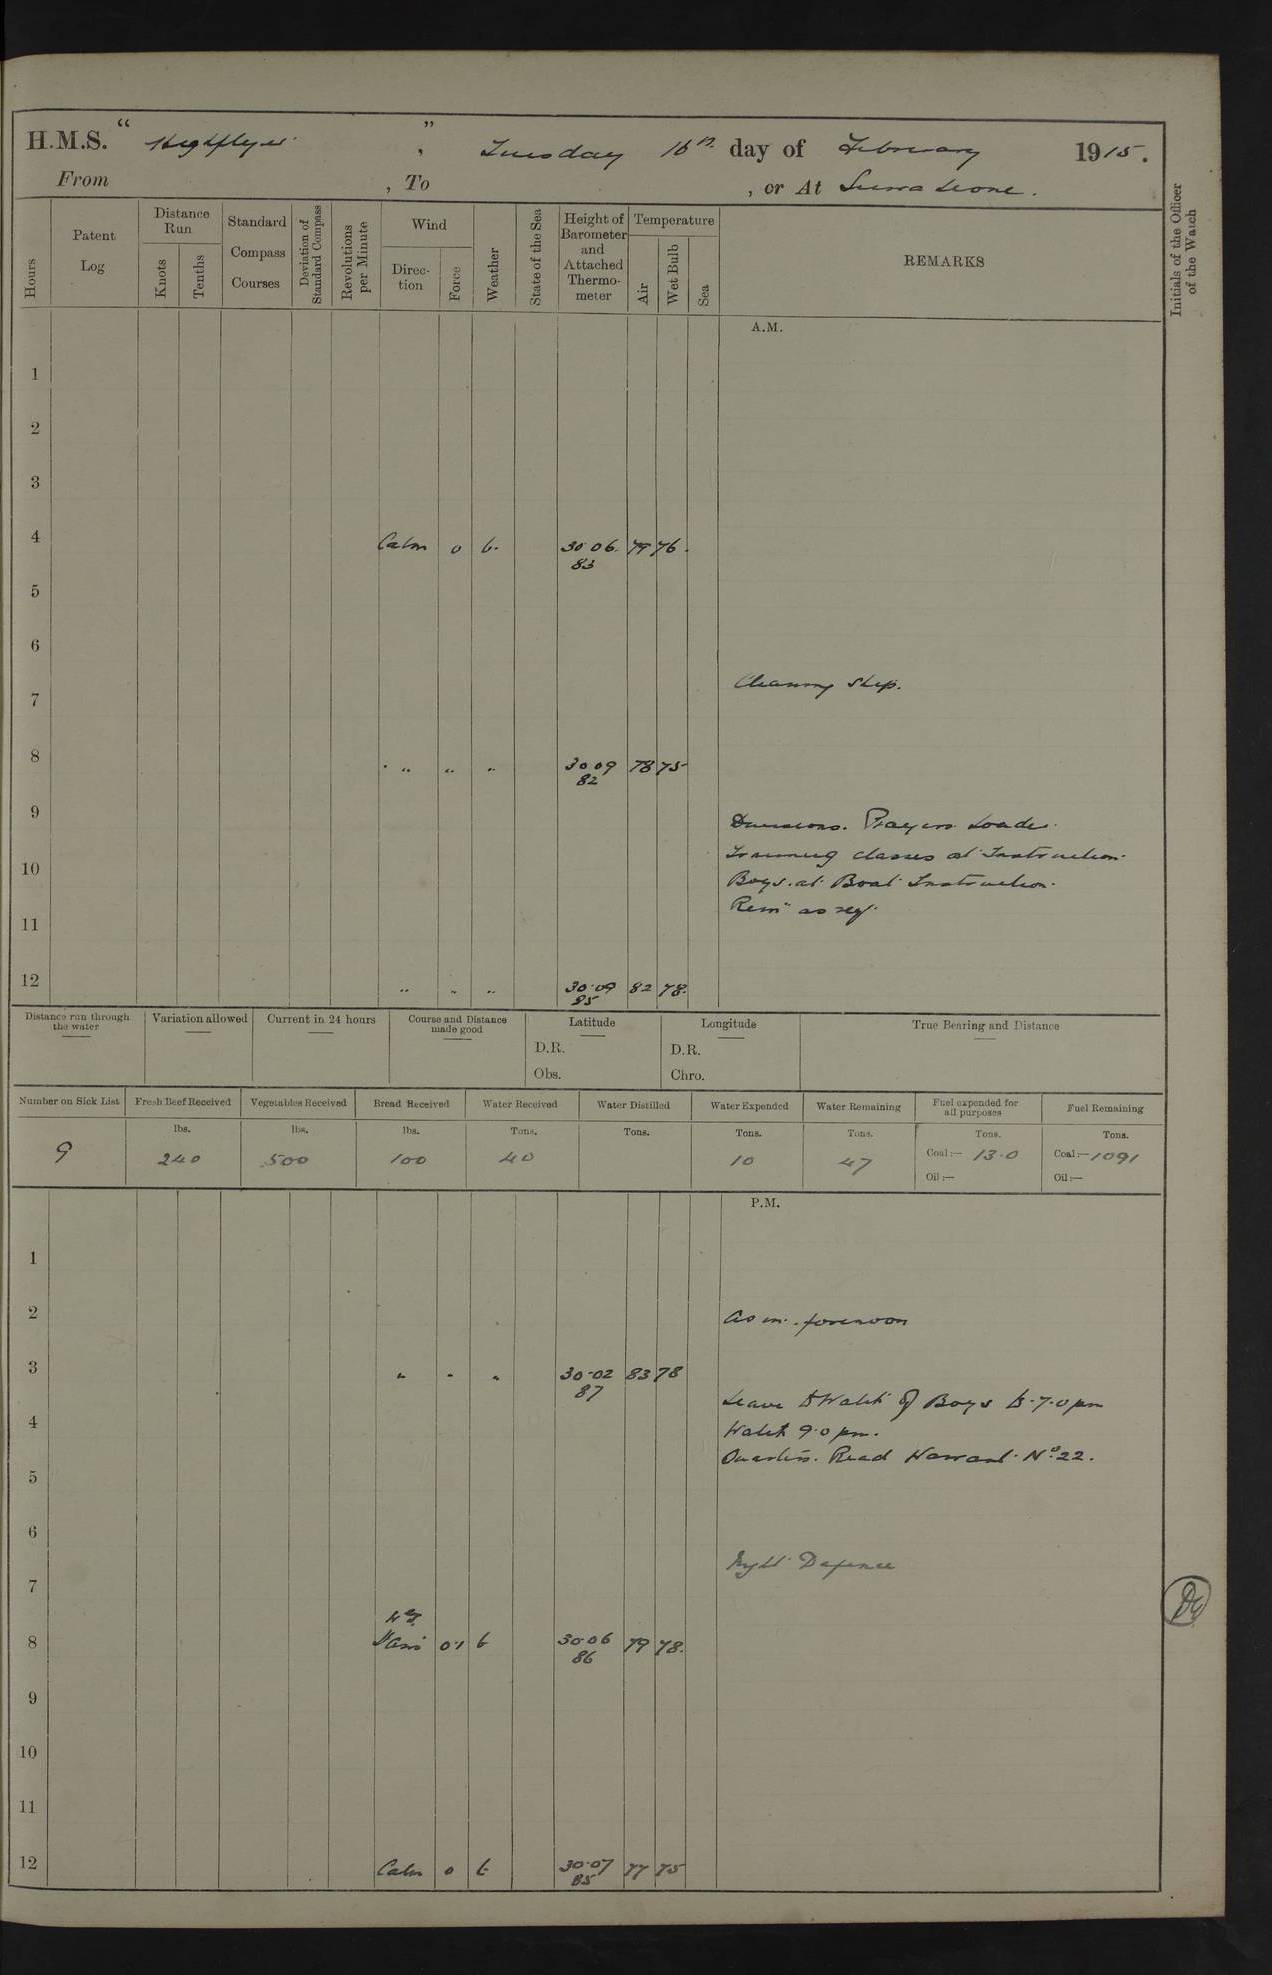 H.M.S. "Highflyer", Tuesday 16th day of February 1915.
From , To , or At Sierra Leone.
Hours
Patent Log
Distance Run
Knots
Tenths
Standard Compass Courses
Deviation of Standard Compass
Revolutions per Minute
Wind
Direction
Force
Weather
State of the Sea
Height of Barometer and Attached Thermometer
Temperature
Air
Wet Bulb
Sea
REMARKS
Initials of the Officer of the Watch
A.M.
1
2
3
4 Calm 0 b. 30.06 83 79 76.
5
6
Cleaning Ship.
7
8 " " " 30.09 82 78 75
9
Divisions. Prayers
10 Training classes at Instruction.
Boys at Boat Instruction.
Remr as req.
11
12 " " " 30.09 85 82 78.
Distance run through the water
Variation allowed
Current in 24 hours
Course and Distance made good
Latitude
D.R.
Obs.
Longitude
D.R.
Chro.
True Bearing and Distance
Number on Sick List
Fresh Beef Received
Vegetables Received
Bread Received
Water Received
Water Distilled
Water Expended
Water Remaining
Fuel expended for all purposes
Fuel Remaining
lbs. lbs. lbs. Tons. Tons. Tons. Tons. Tons. Tons.
9 240 500 100 40 10 47 Coal:— 13.0 Coal:— 1091
Oil:— Oil:—
P.M.
1
2 As in forenoon
3 " " " 30.02 87 83 78
Leave to Watch of Boys to 7.0 pm
4 Watch 9.0 pm.
Quarters. Read Warrant No. 22.
5
6
Night Defence
7
8 Airs 0.1 b 30.06 86 79 78.
9
10
11
12 Calm 0 b 30.07 85 77 75